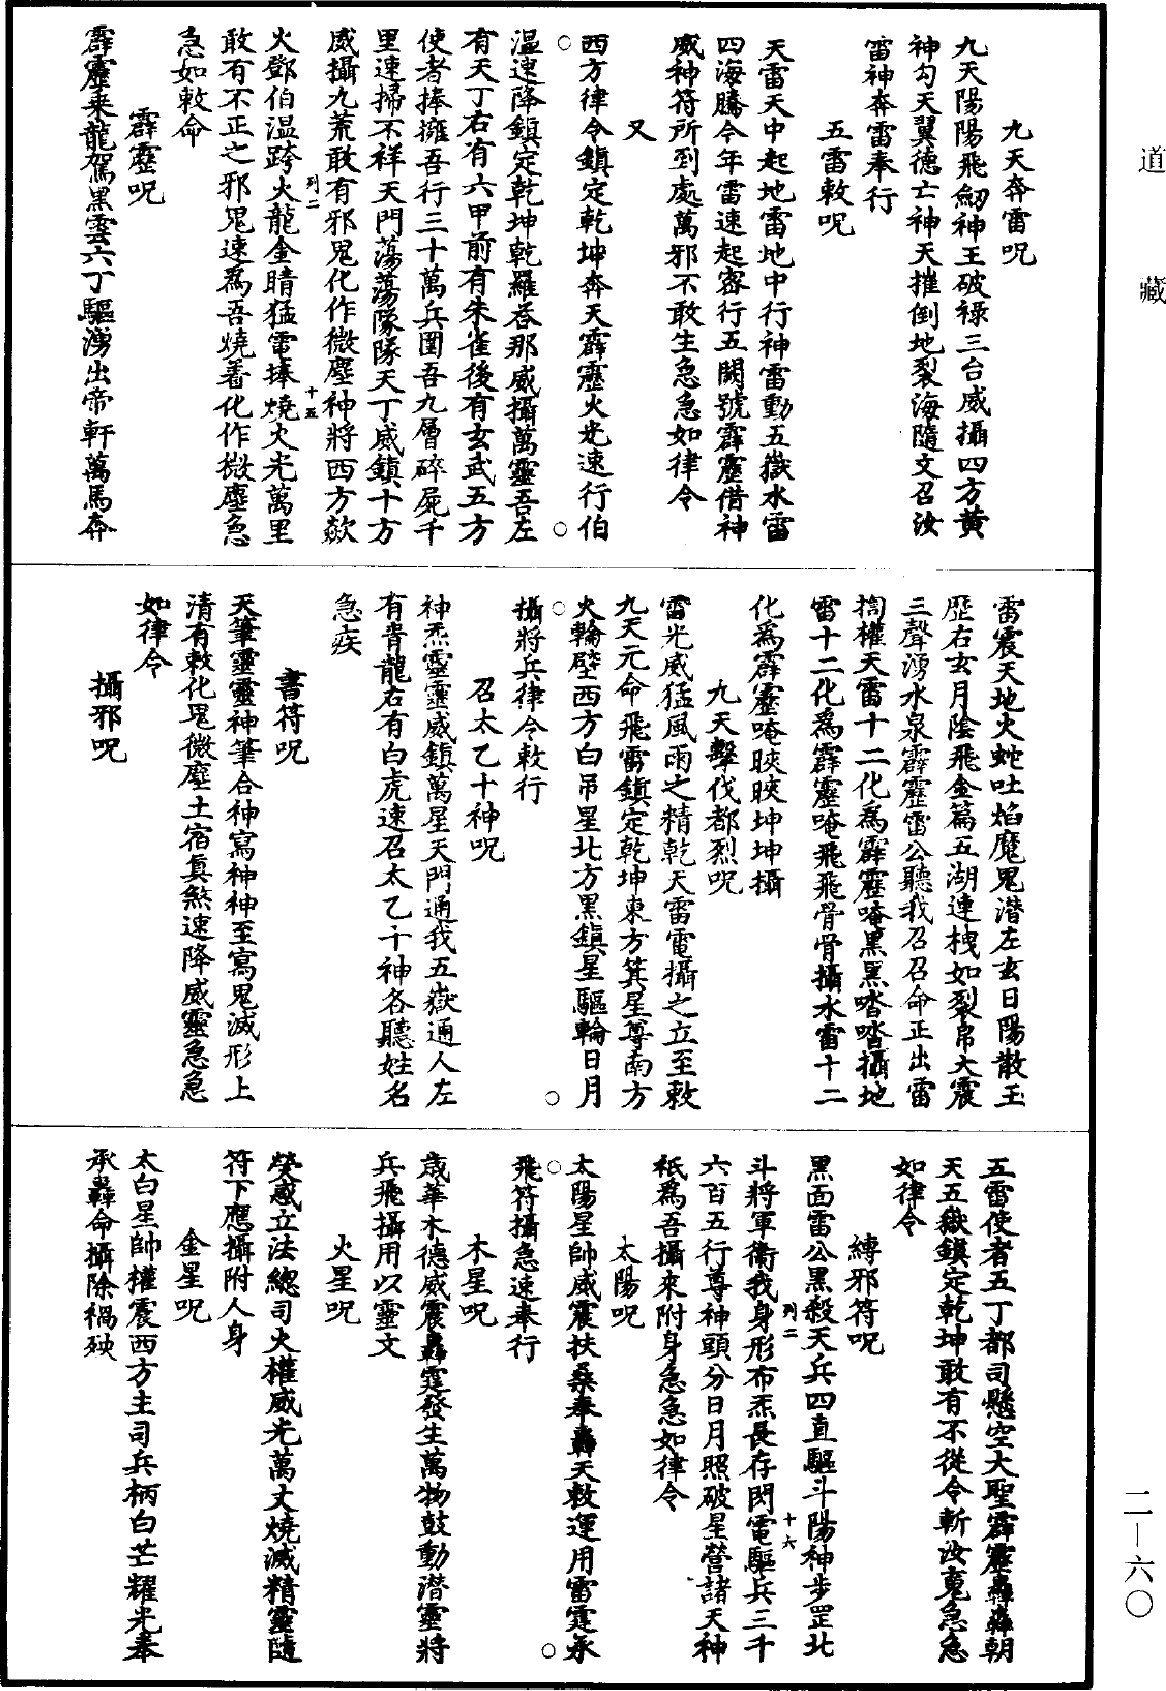 道藏
九天奔雷呪
九天陽陽飛劒神王破祿三台威攝四方黄
神勾天翼德亡神天摧倒地裂海隨文召汝
雷神奔雷奉行
五雷敕呪
天雷天中起地雷地中行神雷動五嶽水雷
四海騰今年雷速起密行五闕號霹靂借神
威神符所到處萬邪不敢生急急如律令
又
西方律令鎮定乾坤奔天霹靂火光速行伯
温速降鎮定乾坤乾羅呑那威攝萬靈吾左
有天丁右有六甲前有朱雀後有玄武五方
使者捧擁吾行三十萬兵圍吾九層碎屍千
里速掃不祥天門蕩蕩隊隊天丁威鎮十方
威攝九荒敢有邪鬼化作微塵神將西方歘
列二 十五
火鄧伯温跨火龍金睛猛電捧燒火光萬里
敢有不正之邪鬼速爲吾燒着化作微塵急
急如敕命
霹靂呪
霹靂乘龍駕黑雲六丁驅湧出帝軒萬馬奔
雷震天地火蛇吐焰魔鬼潜左玄日陽散玉
歷右玄月陰飛金篇五湖連拽如裂帛大震
三聲湧水泉霹靂雷公聽我召召命正出雷
擋權天雷十二化爲霹靂唵黑黑沓沓攝地
雷十二化爲霹靂唵飛飛骨骨攝水雷十二
化爲霹靂唵䀹䀹坤坤攝
九天擊伐都烈呪
雷光威猛風雨之精乾天雷電攝之立至敕
九天元命飛雷鎮定乾坤東方箕星尊南方
火輪壁西方白吊星北方黑鎮星驅輪日月
攝將兵律令敕行
召太乙十神呪
神炁靈靈威鎮萬星天門通我五嶽通人左
有青龍右有白虎速召太乙十神各聽姓名
急疾
書符呪
天筆靈靈神筆合神寫神神至寫鬼滅形上
清有敕化鬼微塵土宿真煞速降威靈急急
如律令
攝邪呪
五雷使者五丁都司懸空大聖霹靂轟轟朝
天五嶽鎮定乾坤敢有不從令斬汝䰟急急
如律令
縛邪符呪
黑面雷公黑殺天兵四直驅斗陽神步罡北
列二 十六
斗將軍衛我身形布炁長存閃電驅兵三千
六百五行尊神頭分日月照破星營諸天神
祇爲吾攝來附身急急如律令
太陽呪
太陽星帥威震扶桑奉轟天敕運用雷霆承
飛符攝急速奉行
木星呪
歲華木德威震轟霆發生萬物鼓動潜靈將
兵飛攝用以靈文
火星呪
熒惑立法總司火權威光萬丈燒滅精靈隨
符下應攝附人身
金星呪
太白星帥權震西方主司兵柄白芒耀光奉
承轟命攝除禍殃
二—六〇